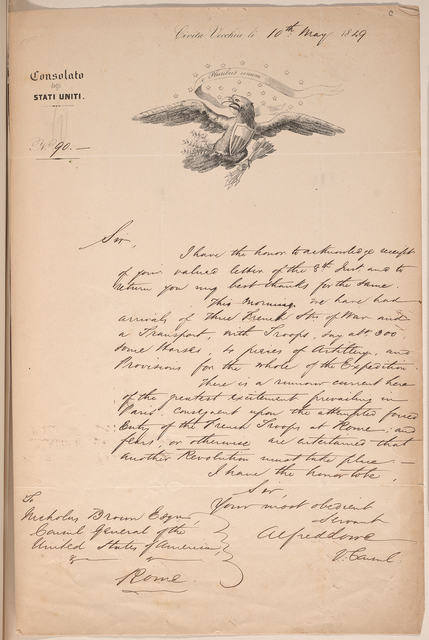 Civita Vecchia li 10th May 1849
Consolato
degli
STATI UNITI.
E Pluribus unum
No. 90.—
Sir,
I have the honor to acknowledge receipt
of your valued letter of the 8th Inst. and to
return you my best thanks for the same.
This morning we have had
arrivals of three French Strs of War and
a Transport, with Troops, say abt. 300
some Horses, pieces of Artillery, and
Provisions for the whole of the Expedition.
There is a rumour current here
of the greatest excitement prevailing in
Paris consequent upon the attempted forced
Entry of the French Troops at Rome; and
fears or otherwise are entertained that
another Revolution must take place.—
I have the honor to be,
Sir,
Your most obedient
Servant
Alfred Lowe
V. Consul
To
Nicholas Brown Esqre
Consul General of the
United States of America,
Rome.